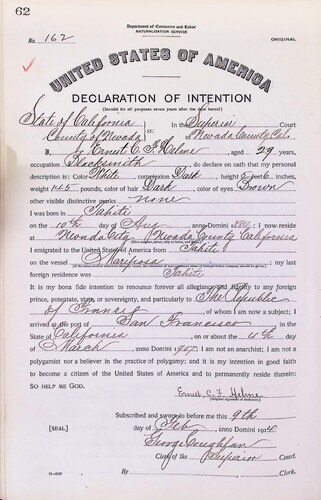 62
Department of Commerce and Labor
NATURALIZATION SERVICE
No. 162
ORIGINAL
UNITED STATES OF AMERICA
DECLARATION OF INTENTION
(Invalid for all purposes seven years after the date hereof)
State of California
In the Superior Court
County of Nevada
ss:
of Nevada County Cal.
I, Ernest C. F. Helme, aged 29 years,
occupation Blacksmith, do declare on oath that my personal
description is: Color White, complexion Dark, height 5 feet 6 inches,
weight 145 pounds, color of hair Dark, color of eyes Brown
other visible distinctive marks none
I was born in Tahiti
on the 10th day of Aug, anno Domini 1884; I now reside
at Nevada City, Nevada County California
I emigrated to the United States of America from Tahiti
on the vessel Mariposa; my last
foreign residence was Tahiti
It is my bona fide intention to renounce forever all allegiance and fidelity to any foreign
prince, potentate, state, or sovereignty, and particularly to The Republic
of France, of whom I am now a subject; I
arrived at the port of San Francisco, in the
State of California, on or about the 4th day
of March, anno Domini 1907; I am not an anarchist; I am not a
polygamist nor a believer in the practice of polygamy; and it is my intention in good faith
to become a citizen of the United States of America and to permanently reside therein:
SO HELP ME GOD.
Ernest C. F. Helme
(Original signature of declarant.)
Subscribed and sworn to before me this 9th
[SEAL]
day of Feb, anno Domini 1914
George Coughlan
Clerk of the Superior Court.
By , Clerk.